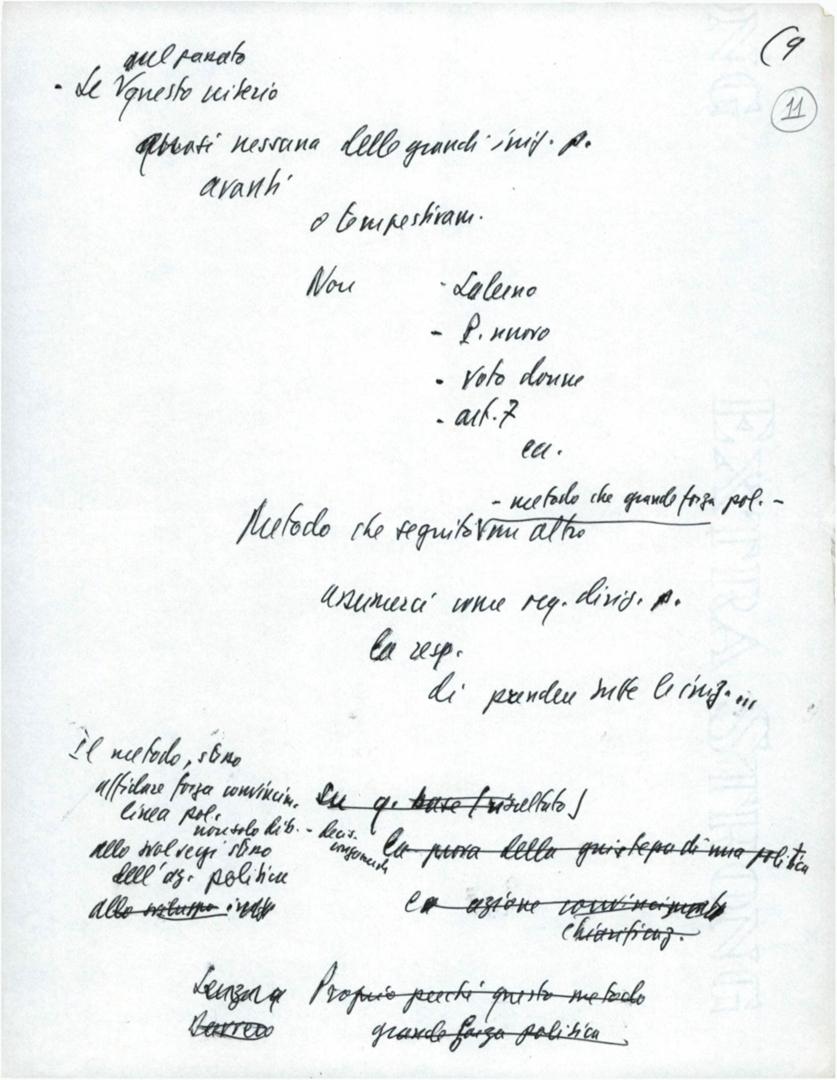 (9
11
nel passato
- Se questo criterio
quasi nessuna delle grandi iniz. p.
avanti
o tempestivam.
Non - Salerno
- P. nuovo
- voto donne
- art. 7
ecc.
- metodo che grande forza pol. -
Metodo che seguito un altro
assumerci come reg. dirig. p.
la resp.
di prendere tutte le iniz....
Il metodo, stino
affidare forza convincim.
linea pol.
non solo dib. - decis.
allo svolgersi stino
dell'az. politica
allo sviluppo
Su q. base (risultato)
la prova della giustezza di una politica
la azione convincimento
chiarificaz.
Proprio perché questo metodo
grande forza politica